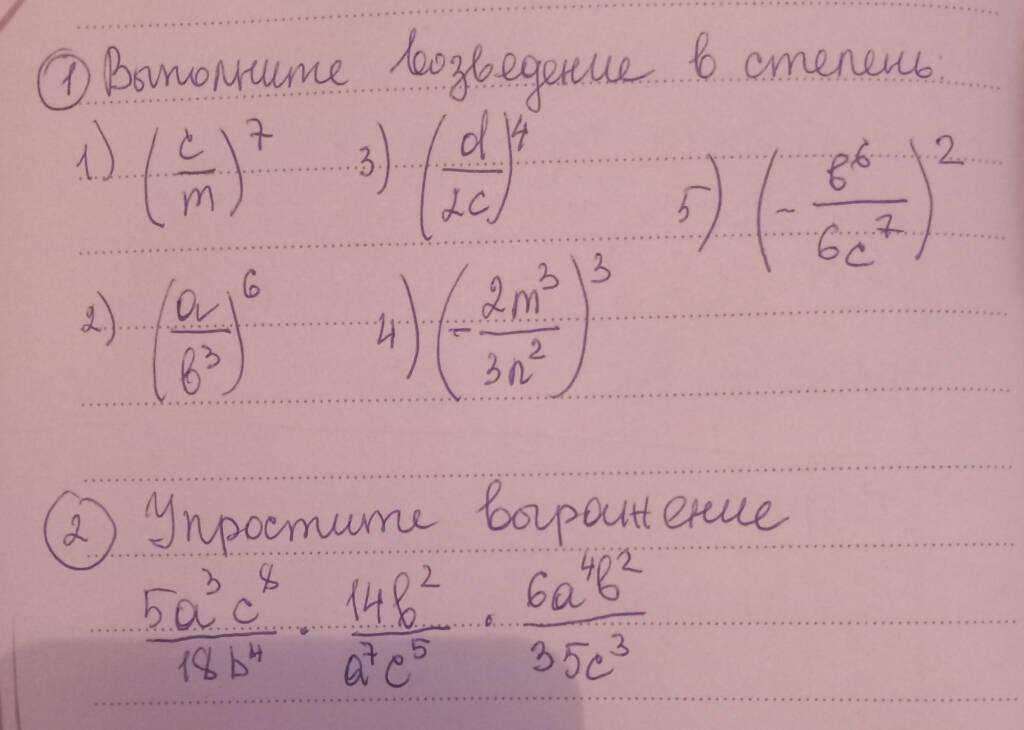 ① Выполните возведение в степень:
1) (c/m)^7 3) (d/2c)^4 5) (- b^6/6c^7)^2
2) (a/b^3)^6 4) (- 2m^3/3n^2)^3
② Упростите выражение
5a^3c^8/18b^4 · 14b^2/a^7c^5 · 6a^4b^2/35c^3